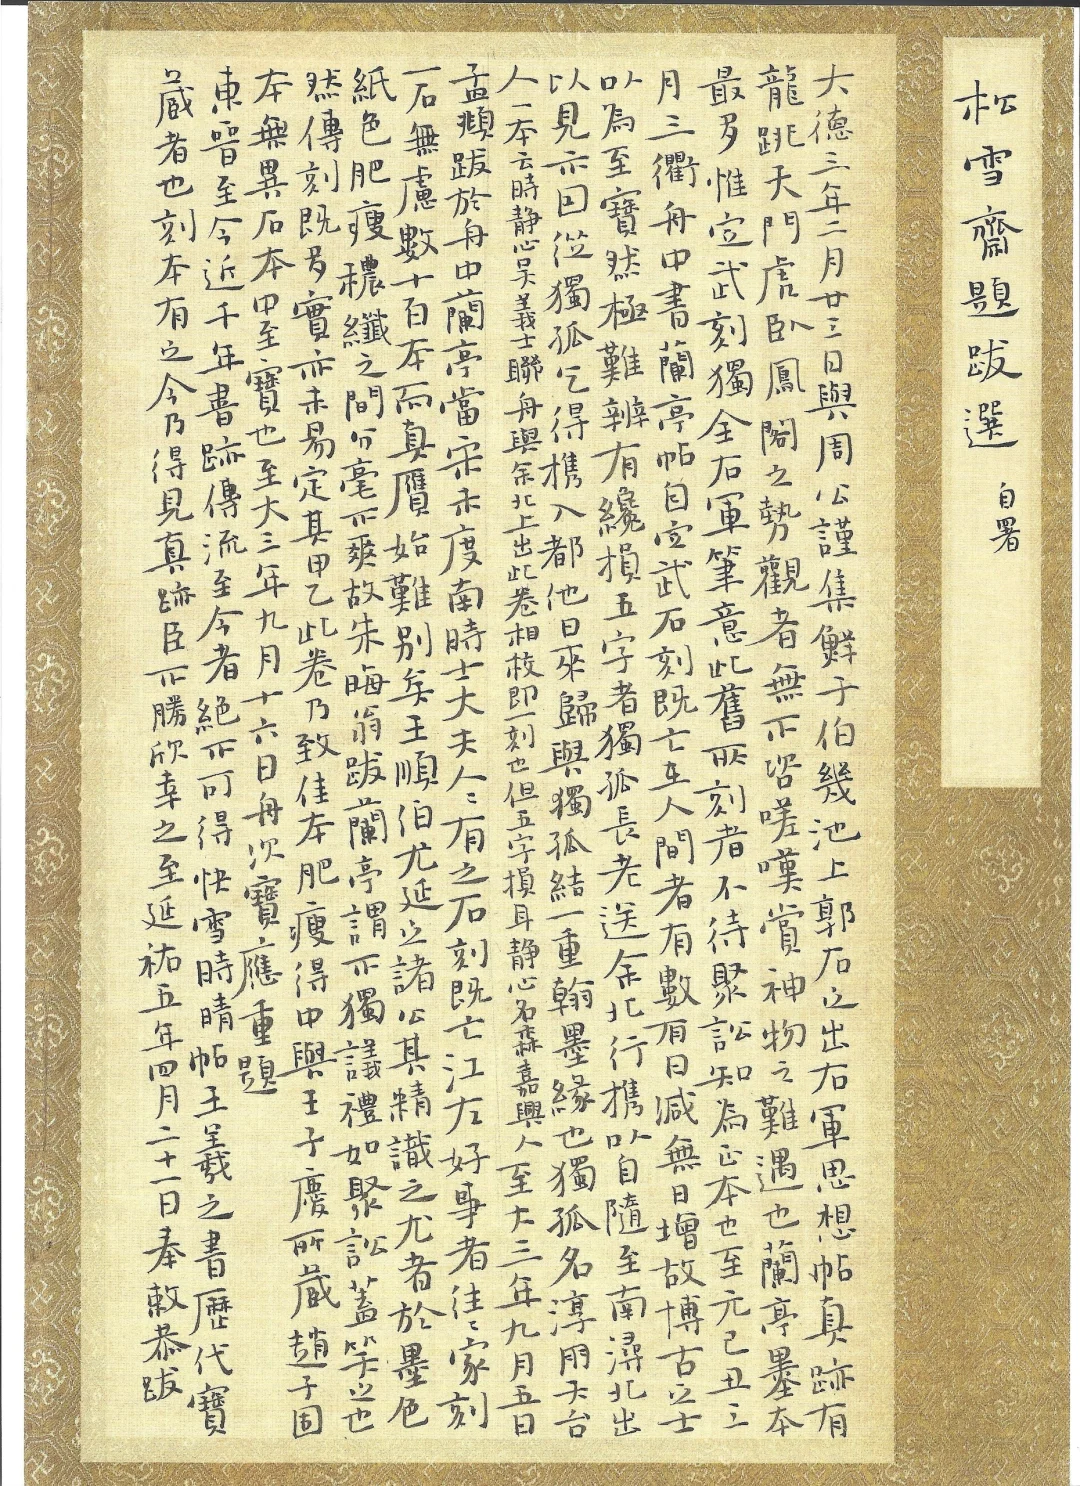 松雪齋題跋選 自署
大德三年二月廿三日與周公謹集鮮于伯幾池上郭右之出右軍思想帖真跡有
龍跳天門虎臥鳳閣之勢觀者無不咨嗟嘆賞神物之難遇也蘭亭墨本
最多惟定武刻獨全右軍筆意此舊所刻者不待聚訟知為正本也至元己丑三
月三衢舟中書蘭亭帖自定武石刻既亡在人間者有數有日減無日增故博古之士
以為至寶然極難辨有纔損五字者獨孤長老送余北行攜以自隨至南潯北出
以見示因從獨孤乞得攜入都他日來歸與獨孤結一重翰墨緣也獨孤名淳朋天台
人一本云時靜心吳義士聯舟與余北上出此卷相校即一刻也但五字損耳靜心名森嘉興人至大三年九月五日
孟頫跋於舟中蘭亭當宋未度南時士大夫人〻有之石刻既亡江左好事者往〻家刻
一石無慮數十百本而真贗始難別矣王順伯尤延之諸公其精識之尤者於墨色
紙色肥瘦穠纖之間分毫不爽故朱晦翁跋蘭亭謂不獨議禮如聚訟蓋笑之也
然傳刻既多實亦未易定其甲乙此卷乃致佳本肥瘦得中與王子慶所藏趙子固
本無異石本中至寶也至大三年九月十六日舟次寶應重題
東晉至今近千年書跡傳流至今者絕不可得快雪時晴帖王羲之書歷代寶
藏者也刻本有之今乃得見真跡臣不勝欣幸之至延祐五年四月二十一日奉敕恭跋